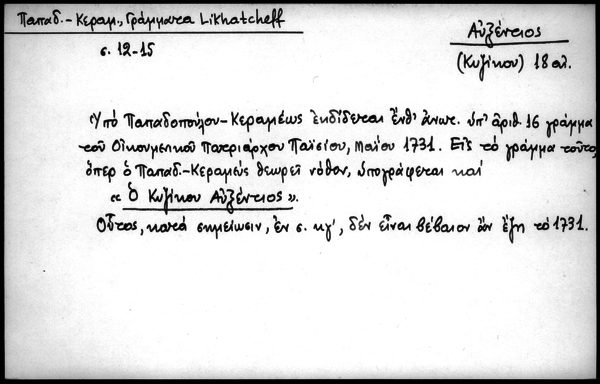 Παπαδ.-Κεραμ., Γράμματα Likhatcheff
σ. 12-15
Αὐξέντιος
(Κυζίκου) 18 αἰ.
Ὑπό Παπαδοπούλου-Κεραμέως ἐκδίδεται ἔνθ' ἀνωτ. ὑπ' ἀριθ. 16 γράμμα
τοῦ Οἰκουμενικοῦ Πατριάρχου Παϊσίου, Μαΐου 1731. Εἰς τό γράμμα τοῦτο,
ὅπερ ὁ Παπαδ.-Κεραμεύς θεωρεῖ νόθον, ὑπογράφεται καί
« Ὁ Κυζίκου Αὐξέντιος ».
Οὗτος, κατά σημείωσιν, ἐν σ. κγ', δέν εἶναι βέβαιον ἄν ἔζη τό 1731.